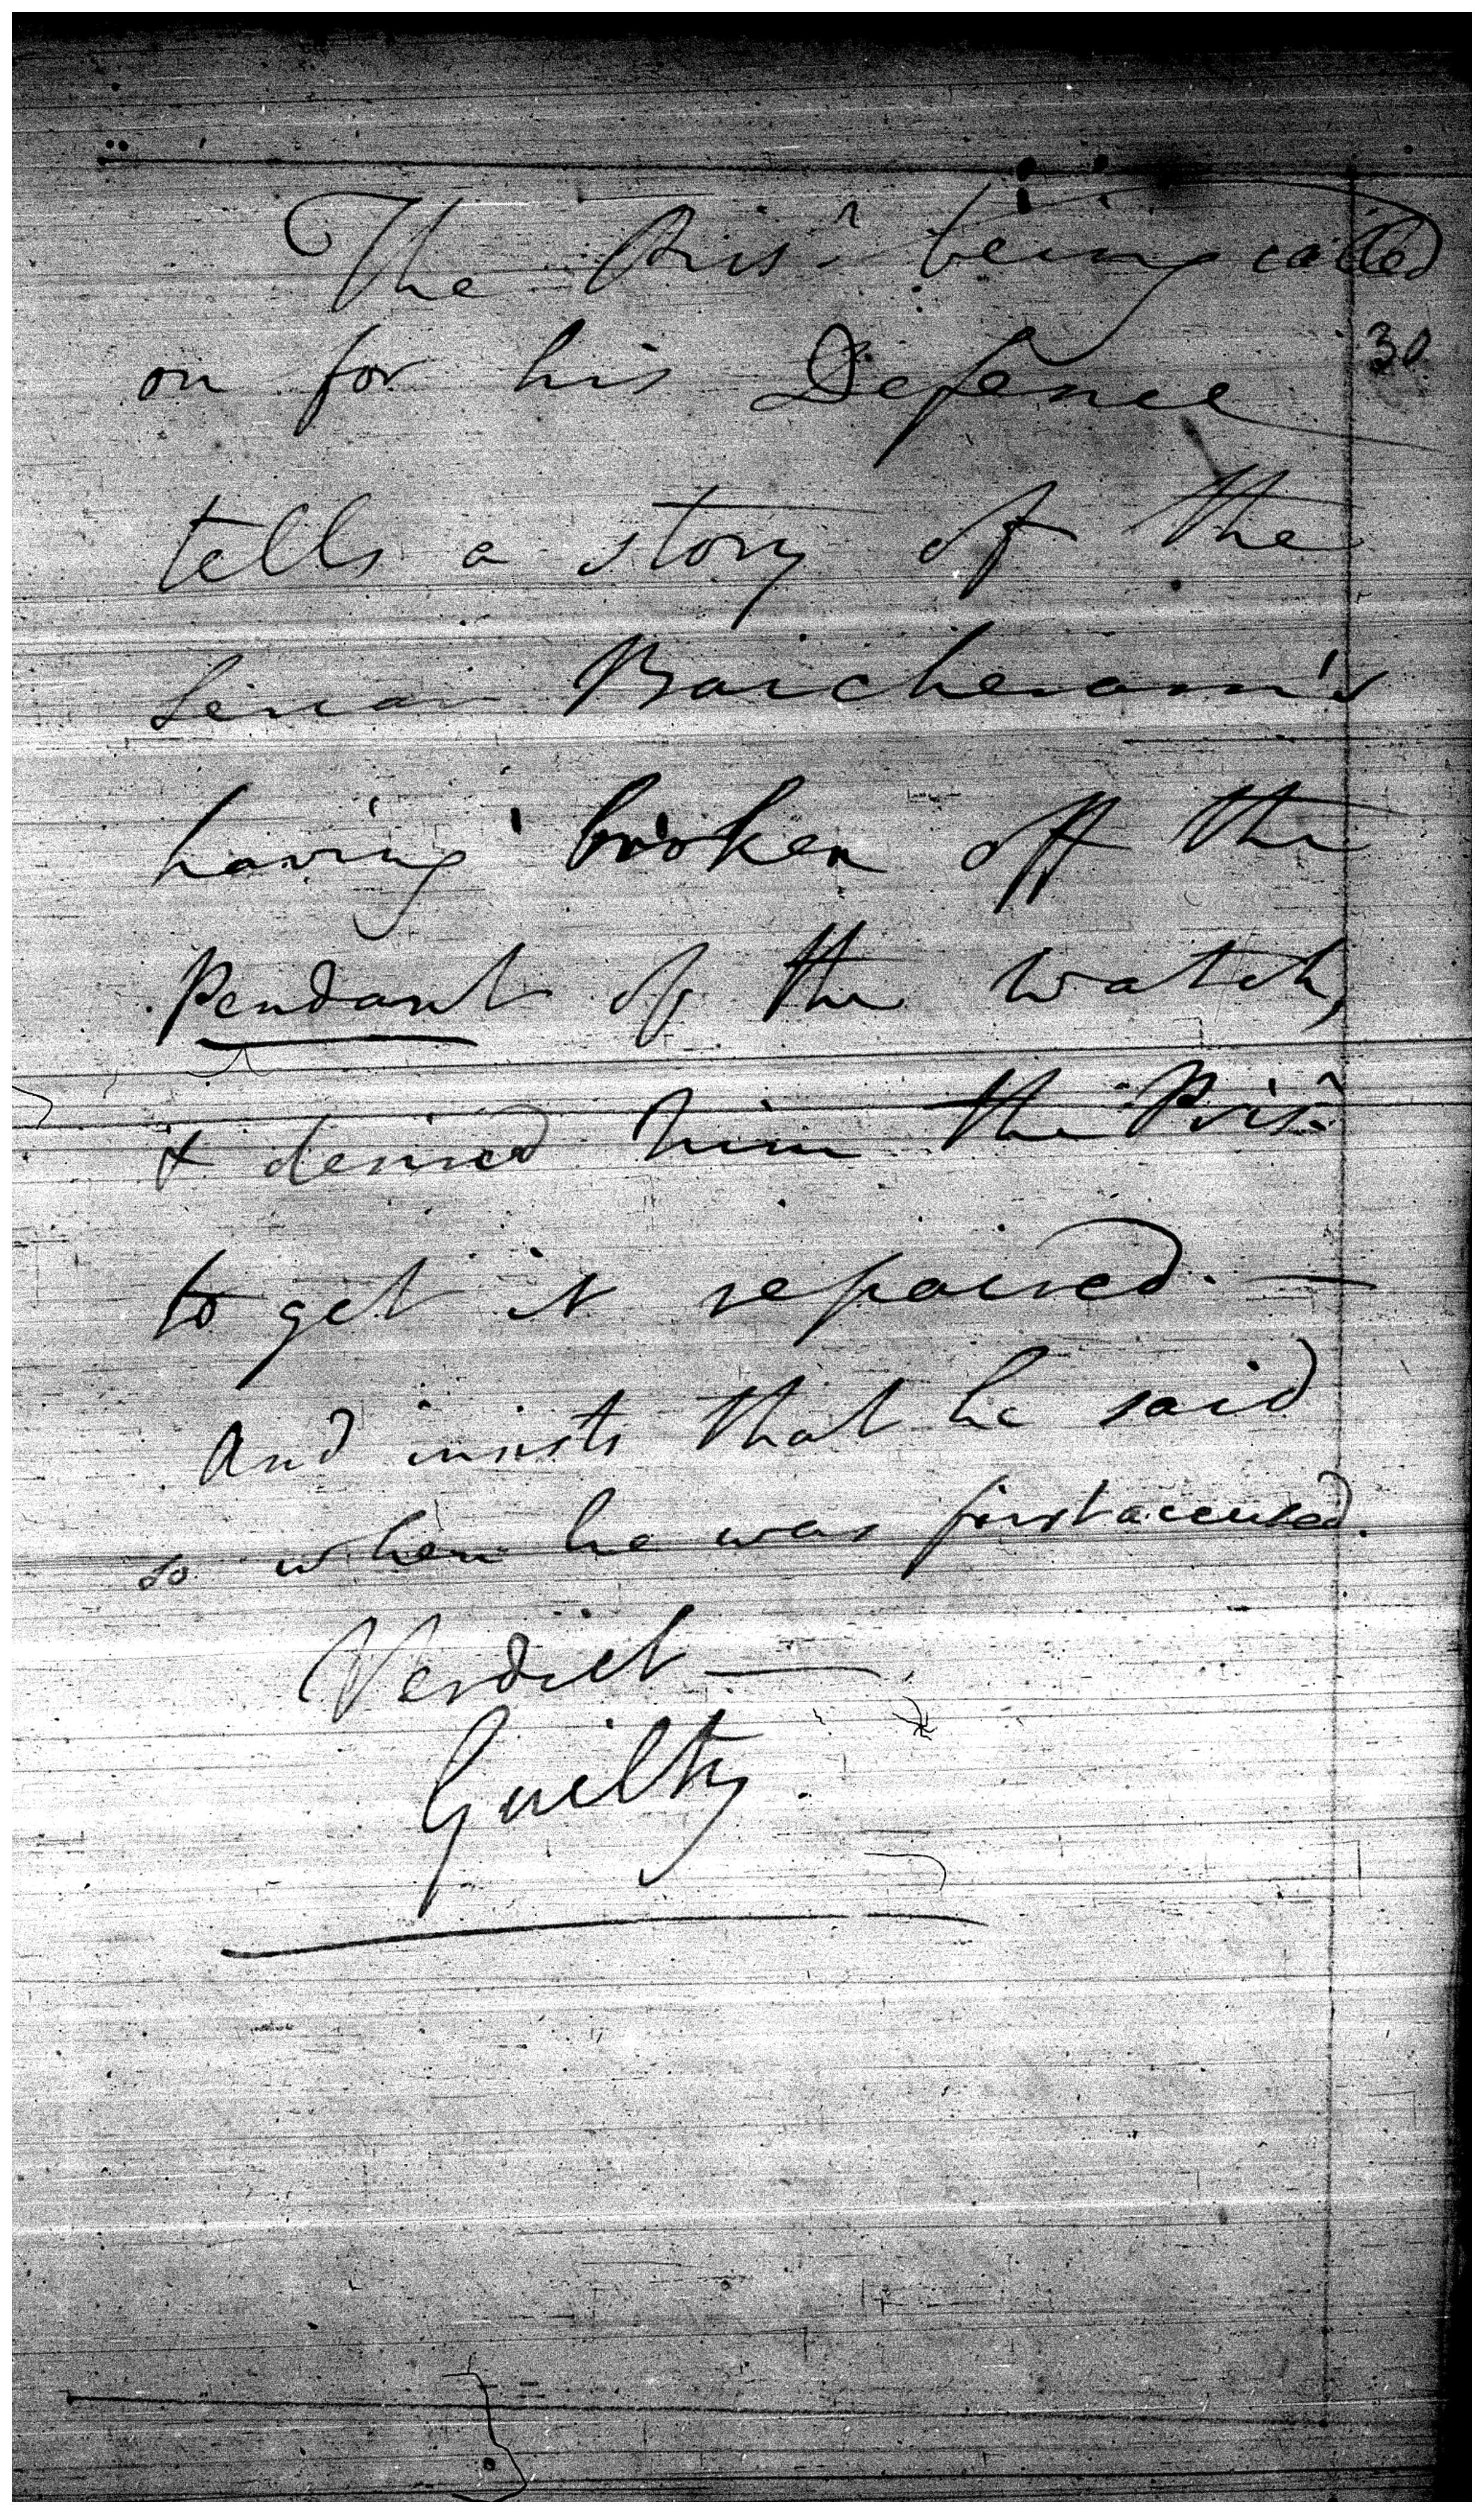 The Pris.r being called
on for his Defence
30
tells a story of the
Baicheram's
having broken off the
Pendant of the watch,
& desired him the Pris.r
to get it repaired. —
And insists that he said
so when he was first accused.
Verdict —
Guilty.